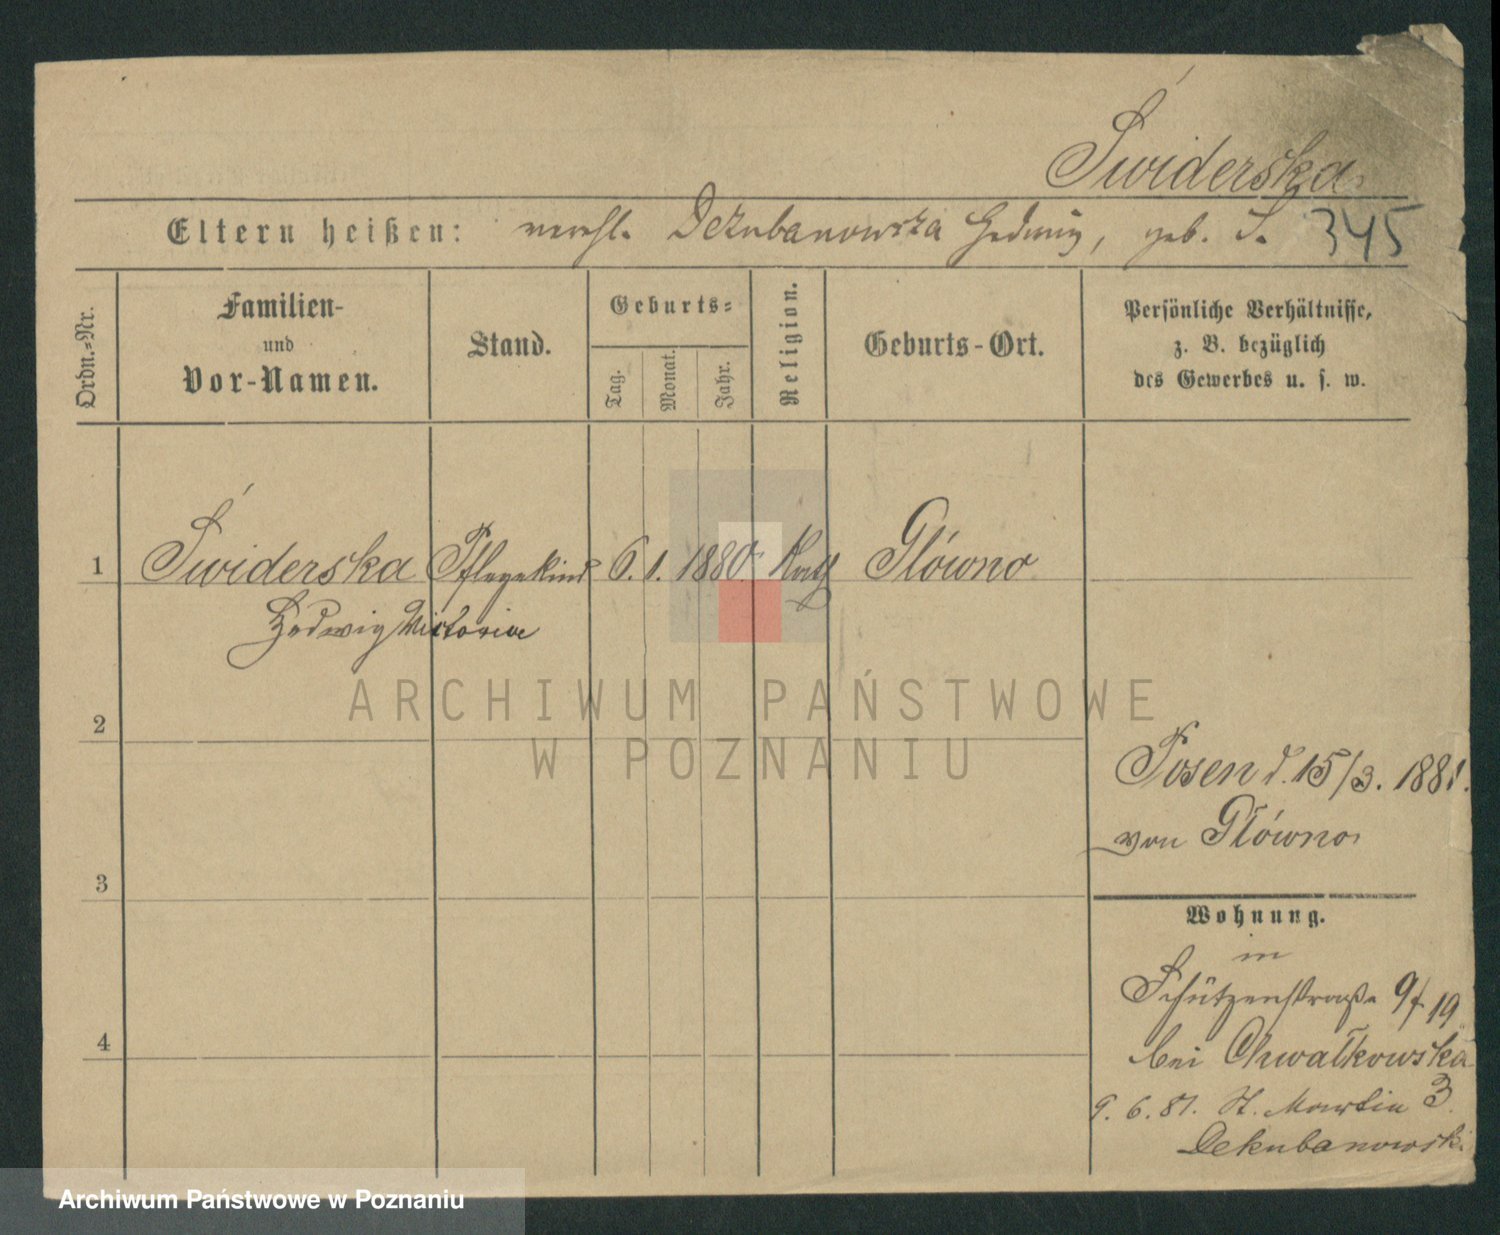 Świderska
Eltern heißen: verehl. Dekubanowska Hedwig, geb. S. 345
Ordn.-Nr.
Familien-
und
Vor-Namen.
Stand.
Geburts-
Tag.
Monat.
Jahr.
Religion.
Geburts-Ort.
Persönliche Verhältnisse,
z. B. bezüglich
des Gewerbes u. s. w.
1 Świderska Pflegekind 6. 1. 1880 Kath Główno
Hedwig Victoria
2
3
4
Posen d. 15/3. 1881.
von Główno
Wohnung.
in
Schützenstraße 9/19
bei Chwałkowska
9. 6. 81. St. Martin 3.
Dekubanowski
ARCHIWUM PAŃSTWOWE
W POZNANIU
Archiwum Państwowe w Poznaniu